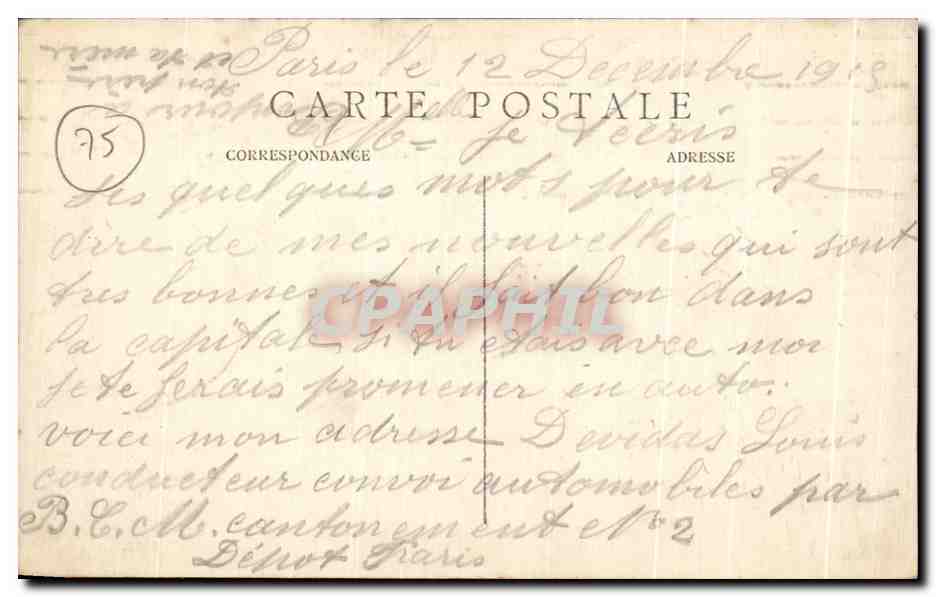 Paris le 12 Decembre 19
CARTE POSTALE
Je t'ecris
75
CORRESPONDANCE
ADRESSE
ses quelques mots pour te
dire de mes nouvelles qui sont
tres bonnes et il fait bon dans
CPAPHIL
la capitale si tu etais avec moi
je te ferais promener en auto.
voici mon adresse Devidas Louis
conducteur convoi automobiles par
B.C.M. cantonement No 2
Dépot Paris
ton père
et ta mère